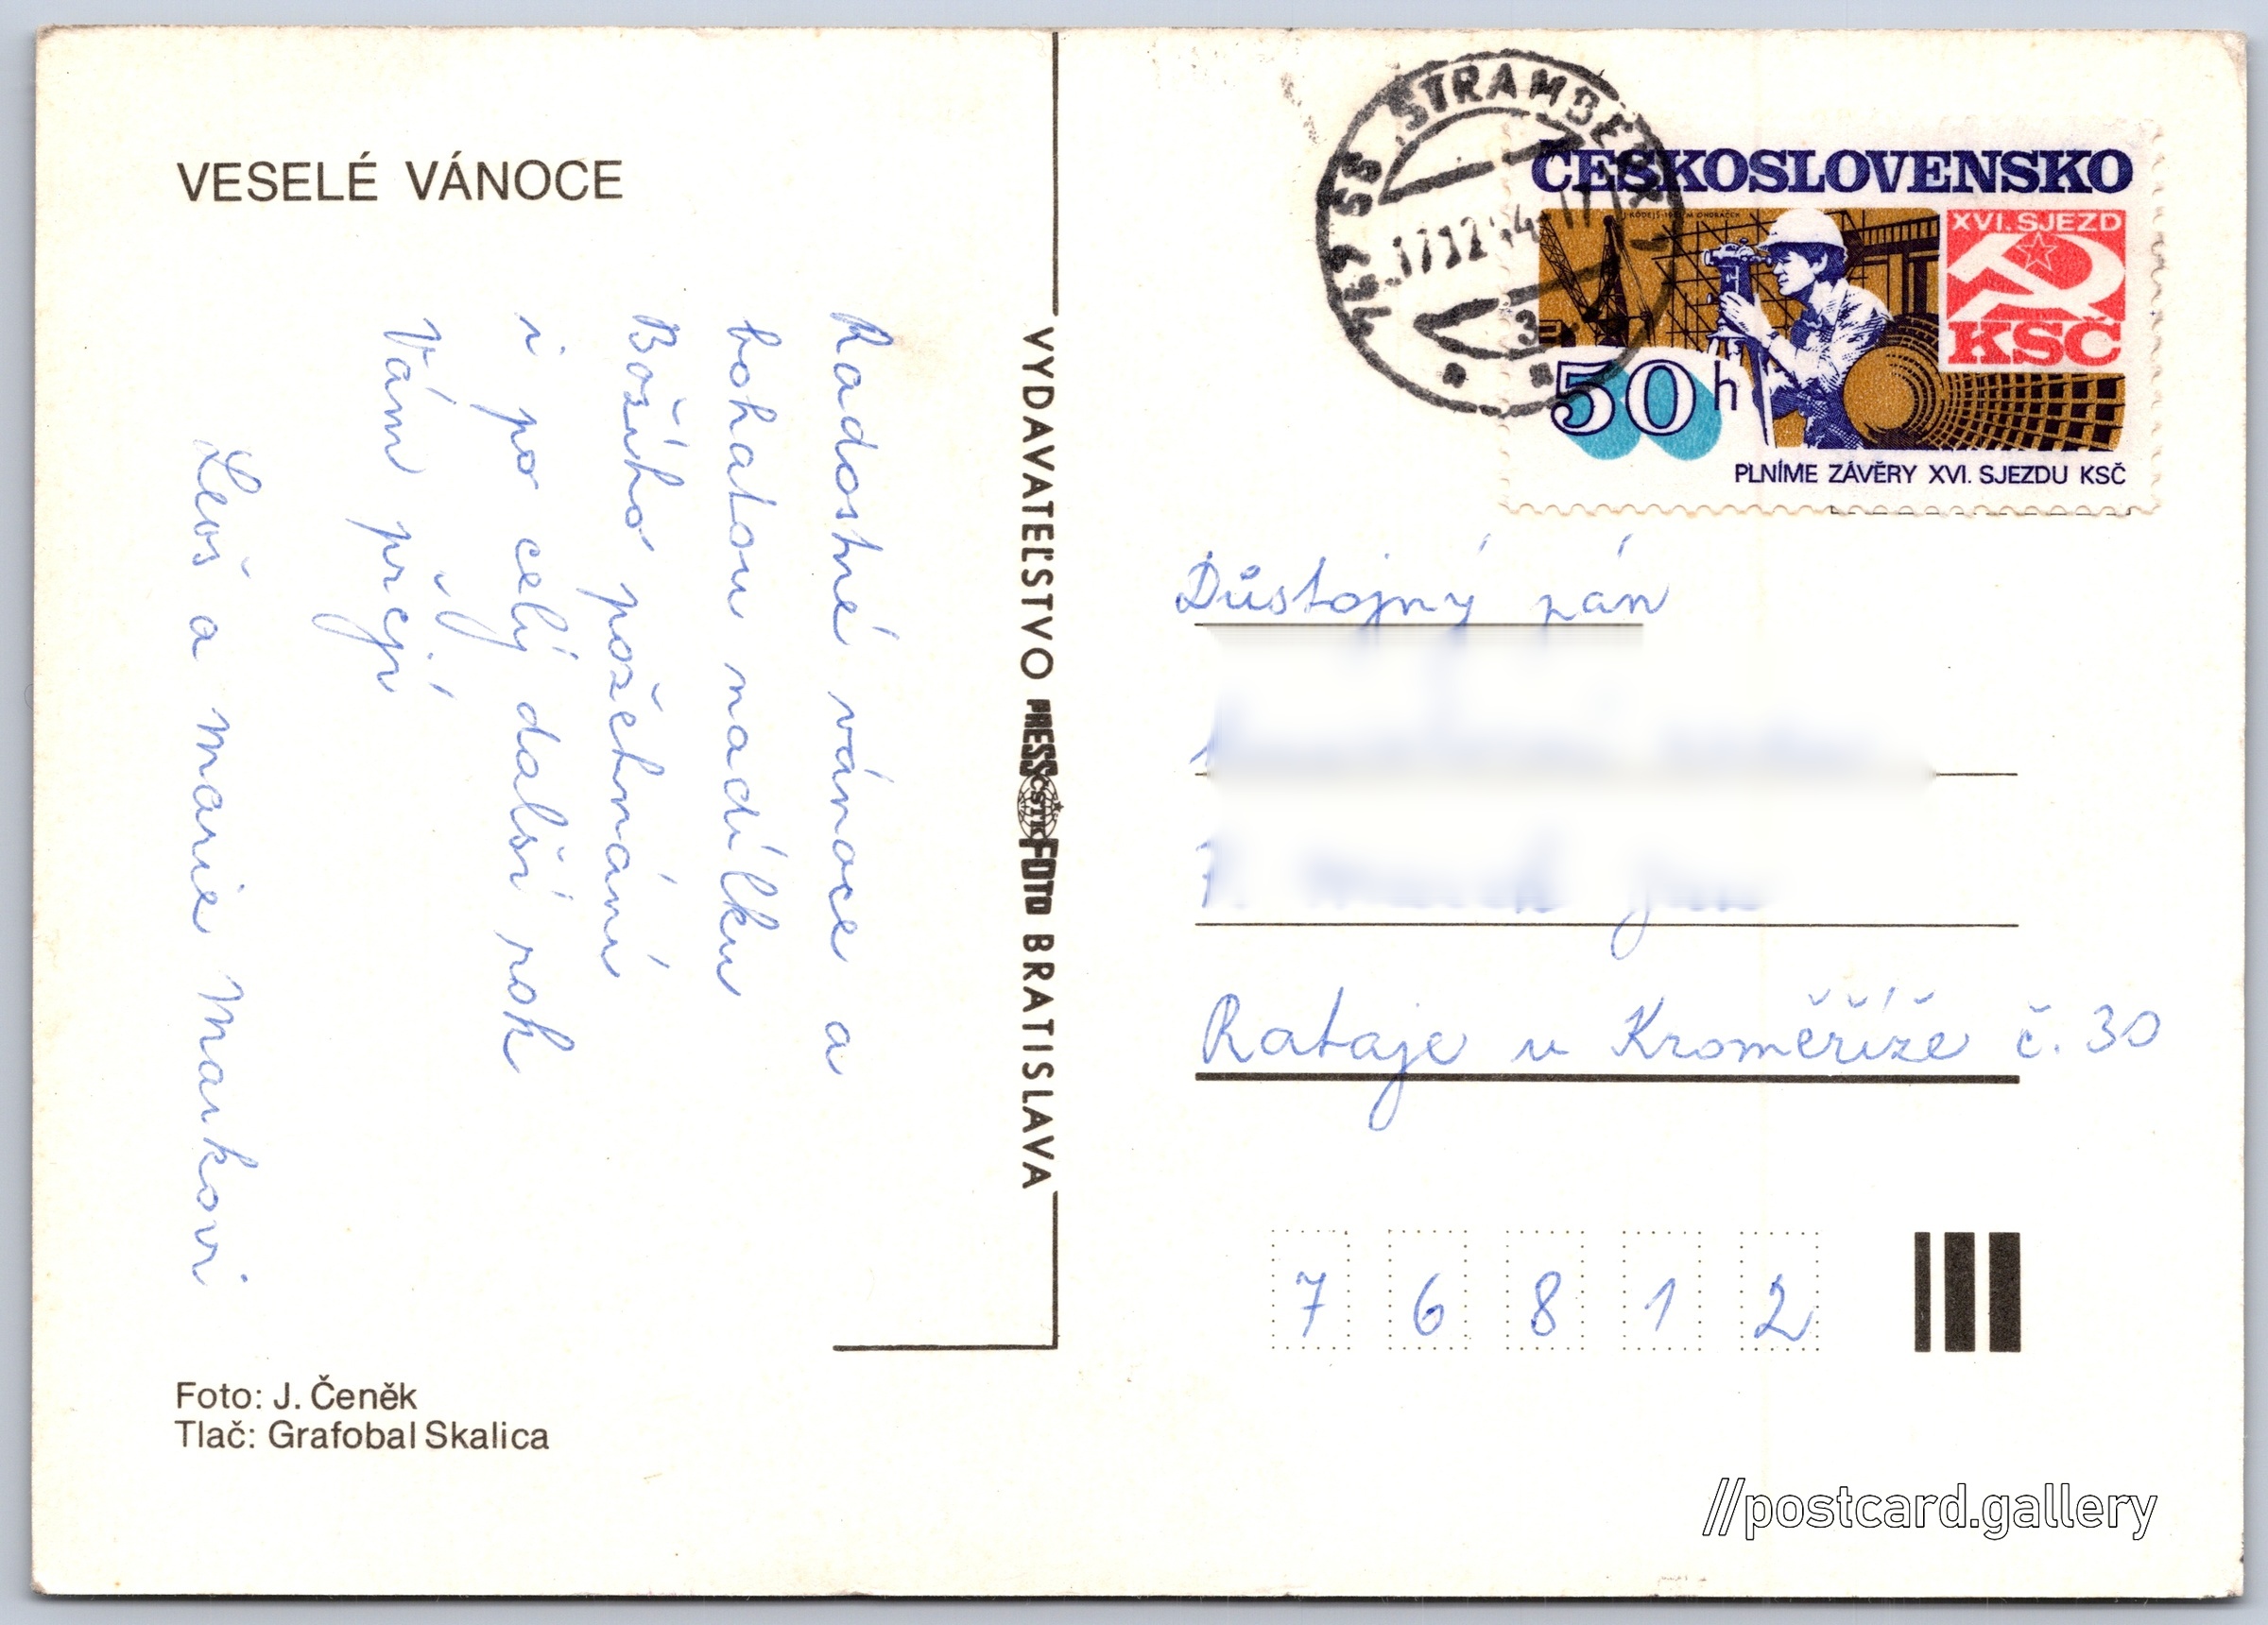 VESELÉ VÁNOCE
Radostné vánoce a
bohatou nadílku
Božího požehnání
i po celý další rok
Vám přejí
Leoš a Marie Markovi
Foto: J. Čeněk
Tlač: Grafobal Skalica
VYDAVATEĽSTVO PRESSFOTO BRATISLAVA
ČSTK
742 66 ŠTRAMBERK
17.12.84-17
3
ČESKOSLOVENSKO
XVI. SJEZD
KSČ
50 h
PLNÍME ZÁVĚRY XVI. SJEZDU KSČ
Důstojný pán
Rataje u Kroměříže č. 30
7 6 8 1 2
//postcard.gallery